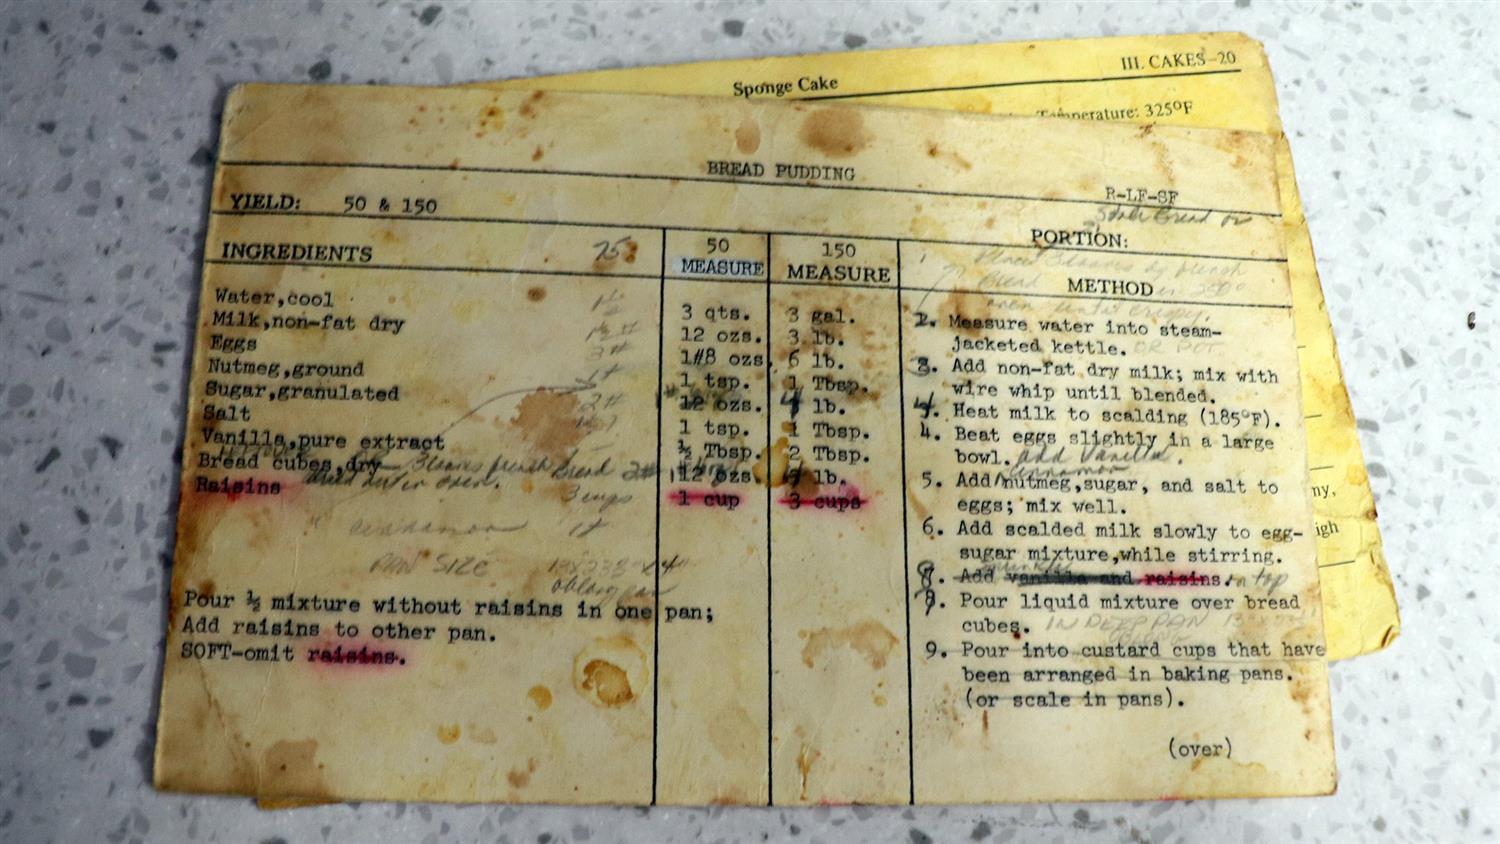 III. CAKES-20
Sponge Cake
Temperature: 325°F
BREAD PUDDING
YIELD: 50 & 150
R-LF-SF
Stale Bread or
PORTION:
INGREDIENTS 75 50 MEASURE 150 MEASURE
METHOD
Water,cool 3 qts. 3 gal.
Milk,non-fat dry 12 ozs. 3 lb.
Eggs 3# 1#8 ozs. 6 lb.
Nutmeg,ground 1 tsp. 1 Tbsp.
Sugar,granulated 2# 12 ozs. 4 lb.
Salt 1 tsp. 1 Tbsp.
Vanilla,pure extract ½ Tbsp. 2 Tbsp.
Bread cubes,dry 3 loaves french bread 2# 12 ozs. lb.
dried out in oven.
Raisins 3 cups 1 cup 3 cups
cinnamon 1t
PAN SIZE
oblong pan
Pour ½ mixture without raisins in one pan;
Add raisins to other pan.
SOFT-omit raisins.
2. Measure water into steam-
jacketed kettle. OR POT
3. Add non-fat dry milk; mix with
wire whip until blended.
4. Heat milk to scalding (185°F).
4. Beat eggs slightly in a large
bowl. add Vanilla.
cinnamon
5. Add nutmeg,sugar, and salt to
eggs; mix well.
6. Add scalded milk slowly to egg-
sugar mixture,while stirring.
8. Add vanilla and raisins. on top
9. Pour liquid mixture over bread
cubes. IN DEEP PAN
9. Pour into custard cups that have
been arranged in baking pans.
(or scale in pans).
(over)
ny,
igh